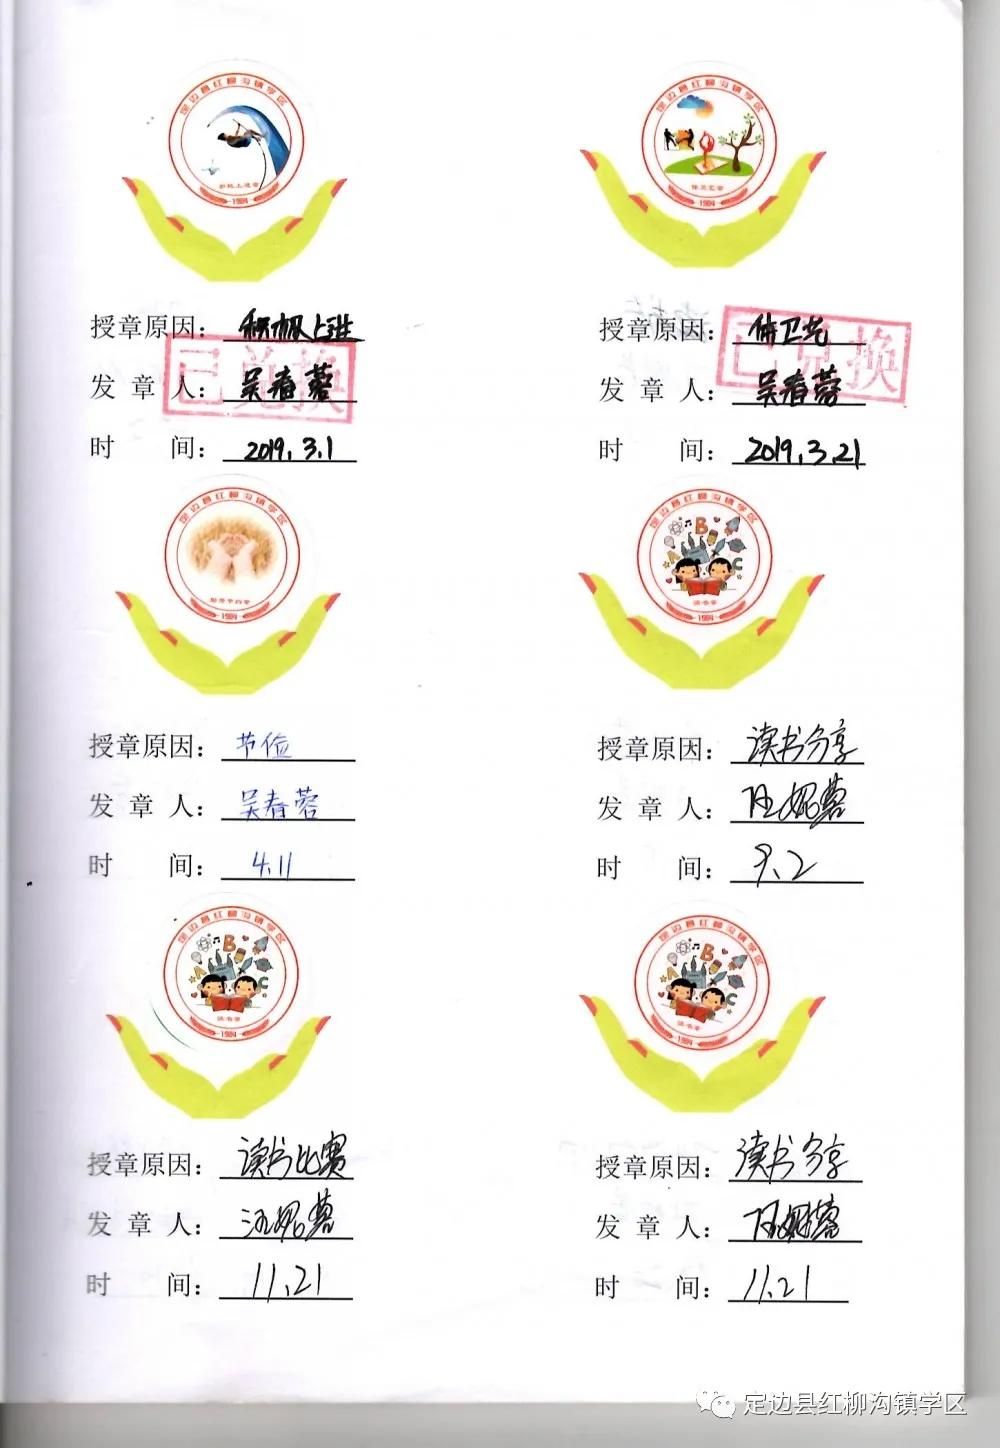 定边县红柳沟镇学区
积极上进章
1984
定边县红柳沟镇学区
1984
授章原因：积极上进
发章人：吴春蓉
时间：2019.3.1
已兑换
授章原因：体卫艺
发章人：吴春蓉
时间：2019.3.21
已兑换
定边县红柳沟镇学区
1984
定边县红柳沟镇学区
读书章
1984
授章原因：节俭
发章人：吴春蓉
时间：4.11
授章原因：读书分享
发章人：
时间：9.2
定边县红柳沟镇学区
读书章
1984
定边县红柳沟镇学区
读书章
1984
授章原因：读书比赛
发章人：
时间：11.21
授章原因：读书分享
发章人：
时间：11.21
定边县红柳沟镇学区